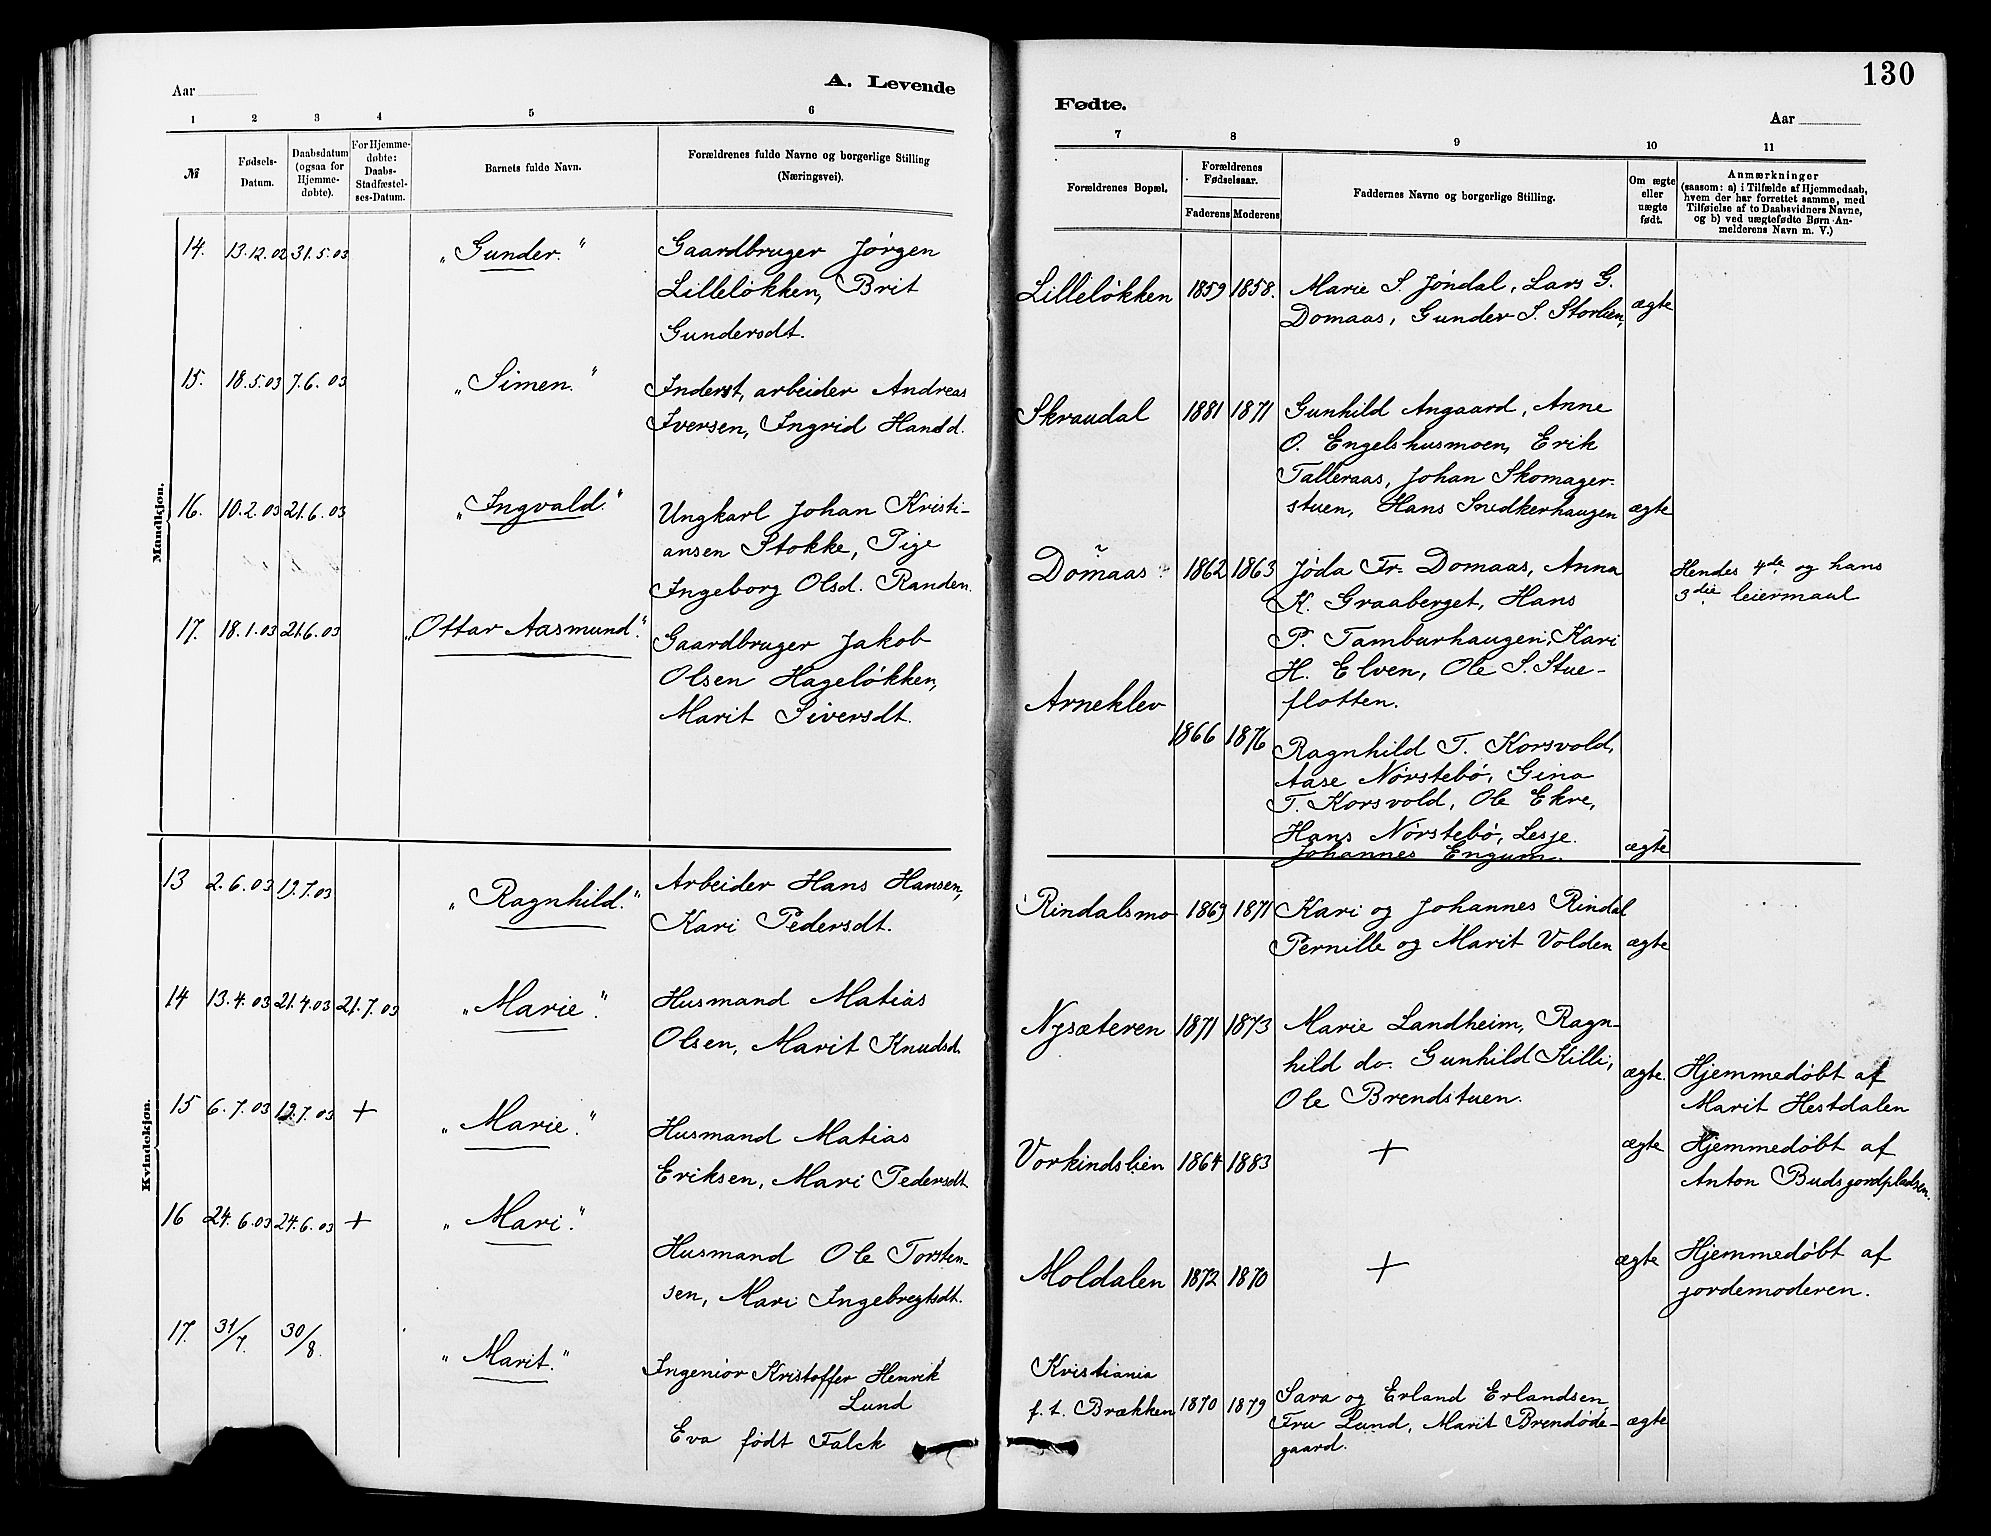 A. Levende
Aar
1 2 3 4 5 6
№
Fødsels-
Datum.
Daabsdatum
(ogsaa for
Hjemme-
døbte).
For Hjemme-
døbte:
Daabs-
Stadfæstel-
ses-Datum.
Barnets fulde Navn.
Forældrenes fulde Navne og borgerlige Stilling
(Næringsvei).
Mandkjøn.
14. 13.12.02 31.5.03 "Gunder." Gaardbruger Jørgen
Lilleløkken, Brit
Gundersdt.
15. 18.5.03 7.6.03 "Simen." Inderst, arbeider Andreas
Iversen, Ingrid Hansd.
16. 10.2.03 21.6.03 "Ingvald." Ungkarl Johan Kristi-
ansen Stokke, Pige
Ingeborg Olsd. Randen.
17. 18.1.03 21.6.03 "Ottar Aasmund." Gaardbruger Jakob
Olsen Hageløkken,
Marit Siversdt.
Kvindekjøn.
13 2.6.03 19.7.03 "Ragnhild." Arbeider Hans Hansen,
Kari Pedersdt.
14 13.4.03 21.4.03 21.7.03 "Marie." Husmand Matias
Olsen, Marit Knudsd.
15 6.7.03 19.7.03 + "Marie." Husmand Matias
Eriksen, Mari Pedersdt
16 24.6.03 24.6.03 + "Mari." Husmand Ole Torsten-
sen, Mari Ingebregtsdt.
17. 31/7. 30/8. "Marit." Ingeniør Kristoffer Henrik
Lund
Eva født Falck
130
Fødte.
Aar
7 8 9 10 11
Forældrenes Bopæl.
Forældrenes
Fødselsaar.
Faderens Moderens
Faddernes Navne og borgerlige Stilling.
Om ægte
eller
uægte
født.
Anmærkninger
(saasom: a) i Tilfælde af Hjemmedaab,
hvem der har forrettet samme, med
Tilføielse af to Daabsvidners Navne,
og b) ved uægtefødte Børn An-
melderens Navn m. V.)
Lilleløkken 1859 1858. Marie S. Jøndal, Lars G.
Domaas, Gunder S. Storlien, ægte
Skraudal 1881 1871 Gunhild Angaard, Anne
O. Engelshusmoen, Erik
Talleraas, Johan Skomager-
stuen, Hans Snedkerhaugen ægte
Domaas 1862 1863 Jøda Fr. Domaas, Anna
K. Graaberget, Hans
P. Tamburhaugen, Kari
H. Elven, Ole S. Stue-
flotten.
Hendes 4de og hans
3die leiermaal
Arneklev 1866 1876 Ragnhild T. Korsvold,
Aase Nørstebø, Gina
T. Korsvold, Ole Ekre,
Hans Nørstebø, Lesje.
Johannes Engum. ægte
Rindalsmo 1869 1871 Kari og Johannes Rindal
Pernille og Marit Volden ægte
Nysæteren 1871 1873 Marie Landheim, Ragn-
hild do. Gunhild Killi,
Ole Brendstuen. ægte.
Hjemmedøbt af
Marit Hestdalen
Vorkindslien 1864 1883 + ægte Hjemmedøbt af
Anton Budsjordpladsen.
Moldalen 1872 1870 + ægte Hjemmedøbt af
jordemoderen.
Kristiania
f. t. Brækken 1870 1879 Sara og Erland Erlandsen,
Fru Lund, Marit Brendøde-
gaard. ægte